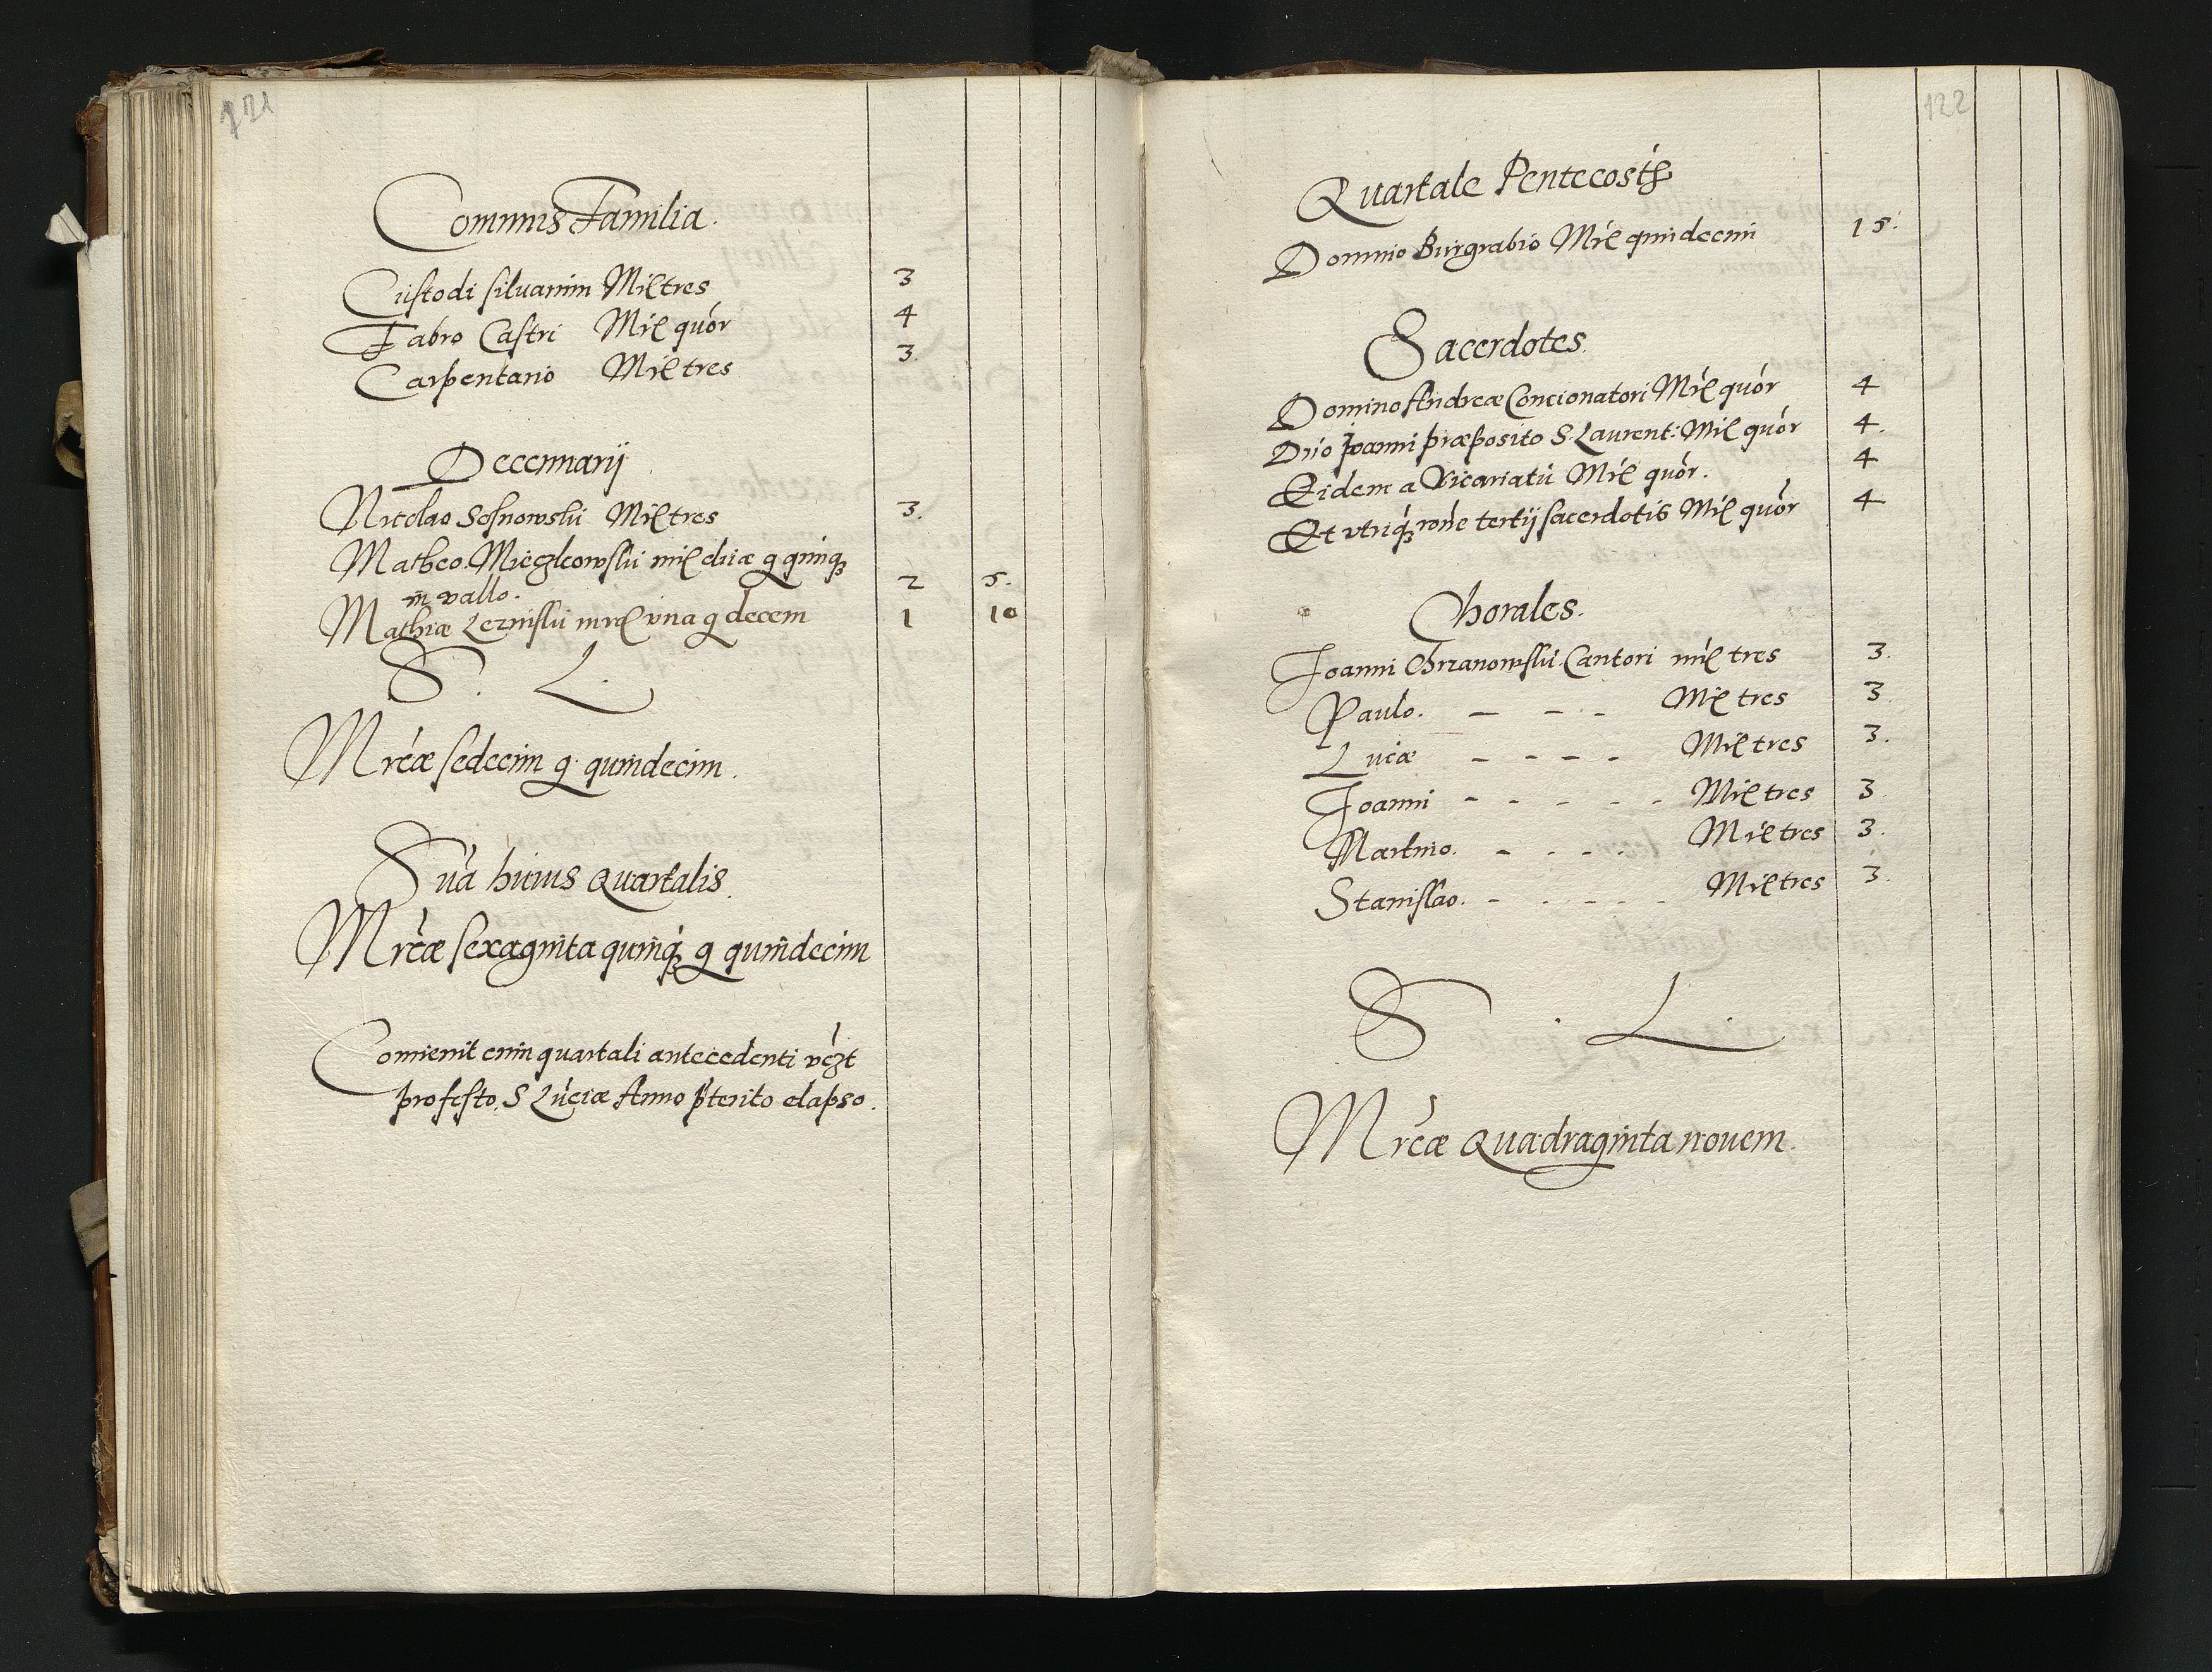 121
Communis Familia.
Custodi siluarum Mrc tres 3
Fabro Castri Mrc quór 4
Carpentario Mrc tres 3.
Decennarij
Nicolao Sosnowski Mrc tres 3.
Matheo Mieczkowski mrc duæ g quinqꝫ
in vallo. 2 5.
Mathiæ Lezenski mrc vna g decem 1 10
S. L.
Mrcæ sedecim g quindecim.
Sũa huius Quartalis.
Mrcæ sexaginta quinqꝫ g quindecim
Conuenit enim quartali antecedenti vꝫt
pro festo S Luciæ Anno pterito elapso.
122
Quartale Pentecostes
Domino Burgrabio Mrc quindecim 15.
Sacerdotes.
Domino Andreæ Concionatori Mrc quór 4
Dno Joanni præposito S. Laurent: Mrc quór 4.
Eidem a Vicariatu Mrc quór. 4
Et vtriqꝫ rone tertij sacerdotis Mrc quór 4
Chorales.
Joanni Chrzanowski Cantori mrc tres 3.
Paulo. - - - Mrc tres 3.
Lucæ - - - - Mrc tres 3.
Joanni - - - - - Mrc tres 3
Martino. - - - - Mrc tres 3.
Stanislao. - - - - - Mrc tres 3.
S. L.
Mrcæ Quadraginta nouem.